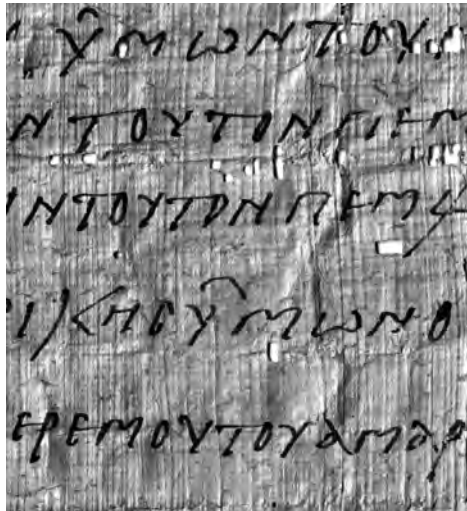 ΥΜΩΝΤΟΥ
ΝΤΟΥΤΟΝΠΕΜ
ΝΤΟΥΤΟΝΠΕΜ
ΙΚΗΕΥΜΩΝΟ
ΕΡΕΜΟΥΤΟΥΑΜΑΡ